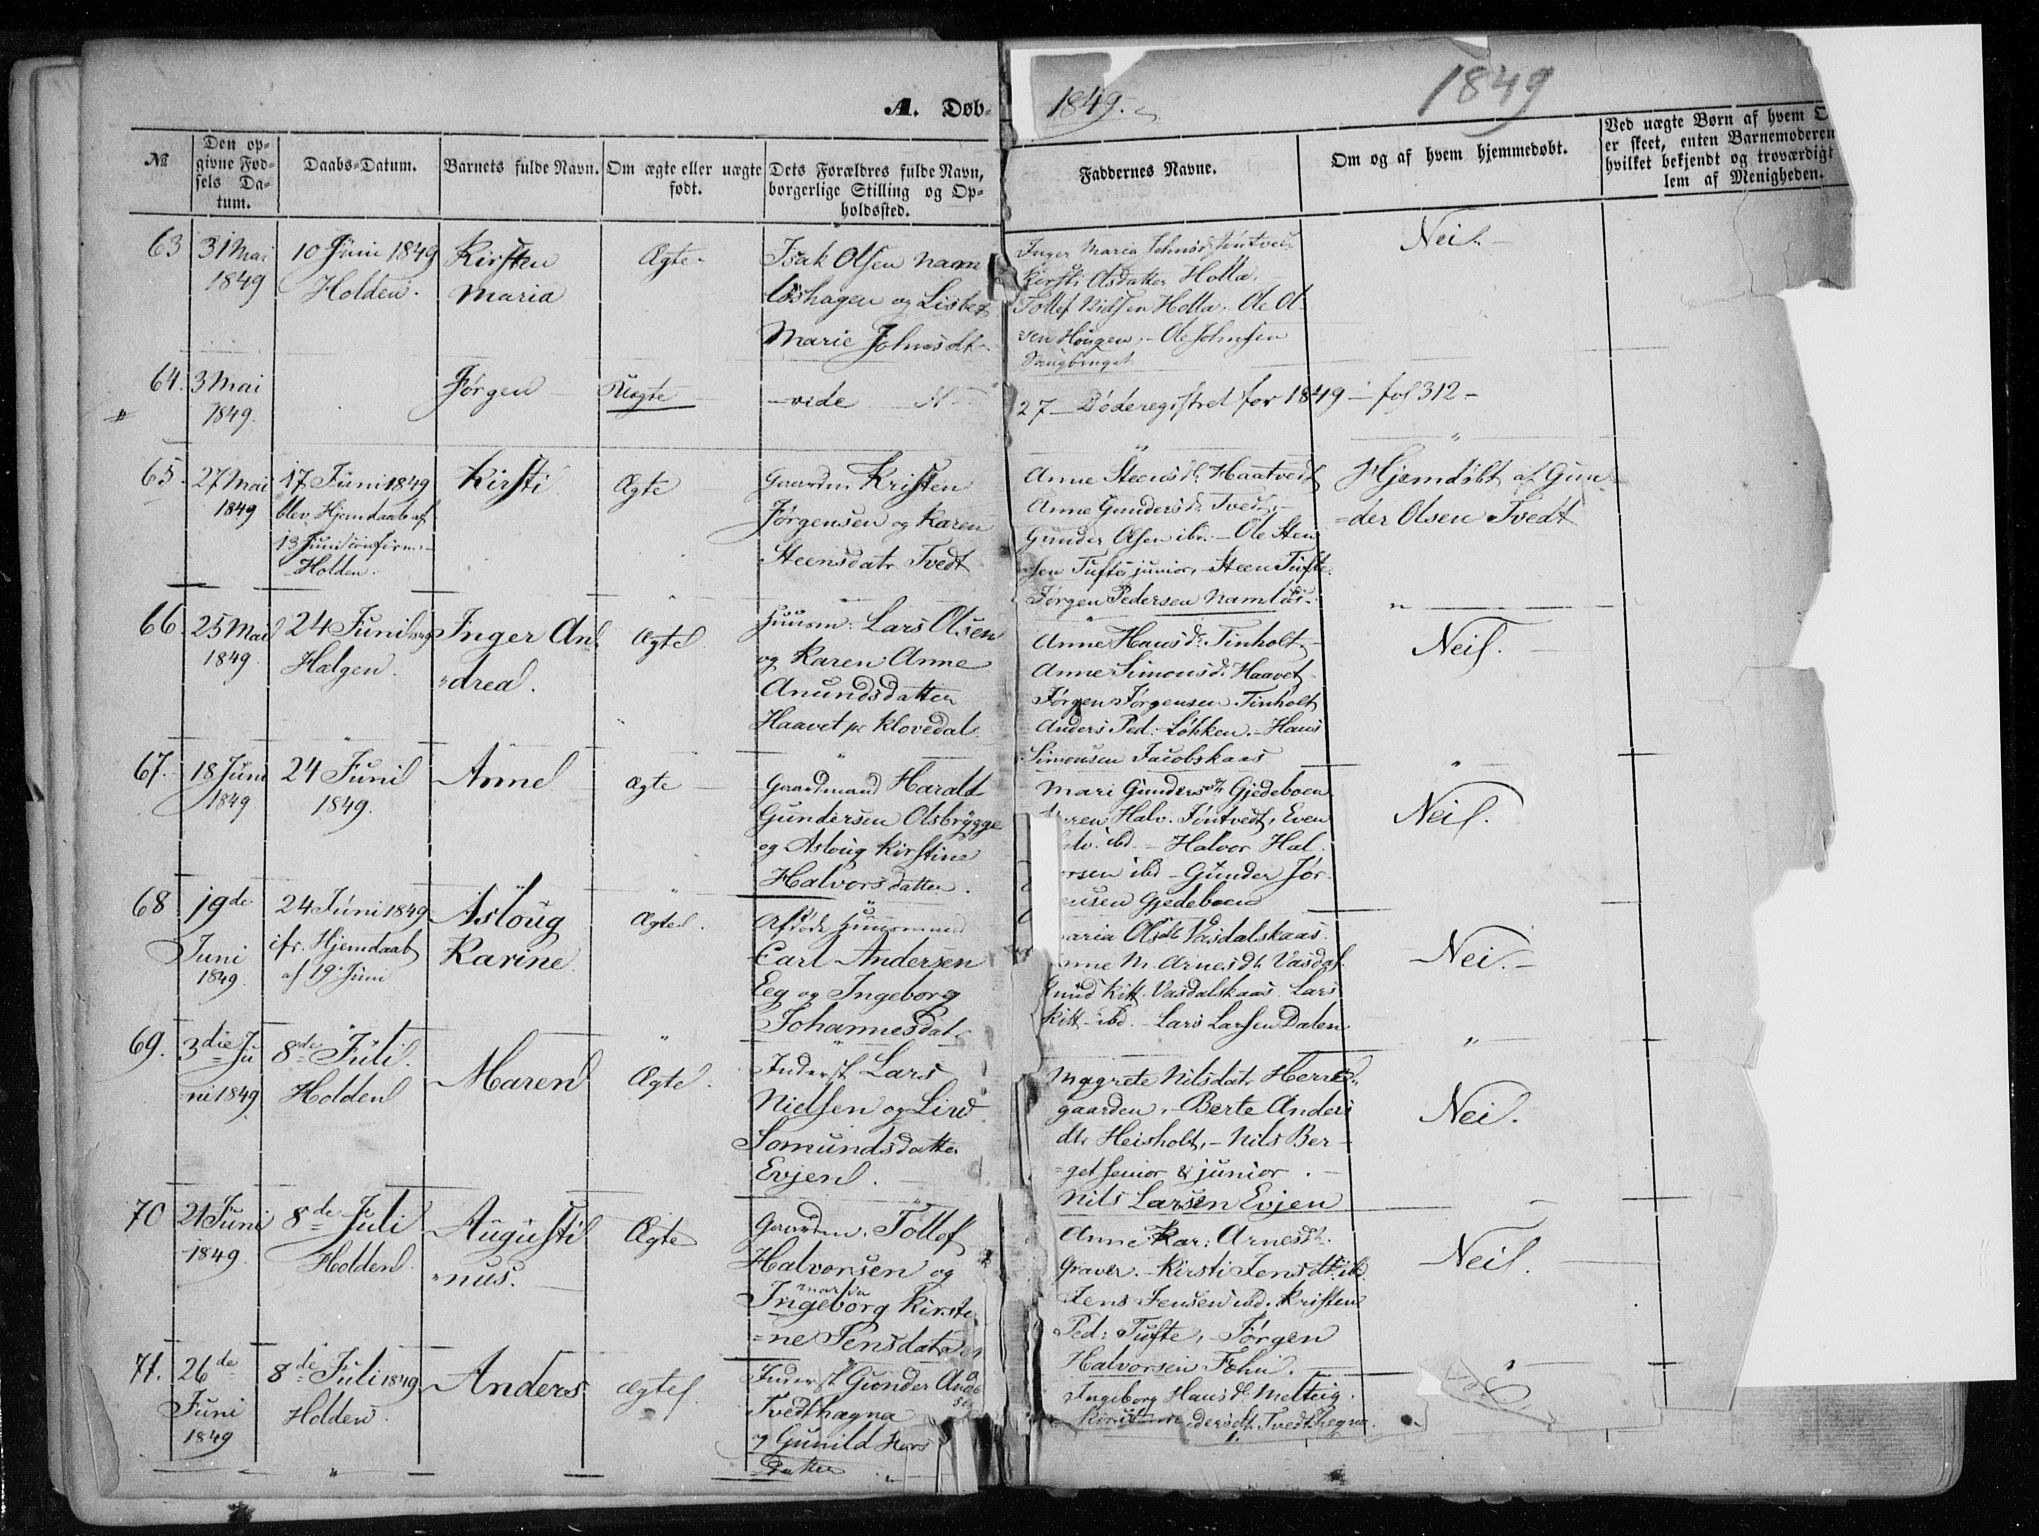 A. Døb-
1849.
1849
№
Den op-
givne Fød-
sels Da-
tum.
Daabs-Datum.
Barnets fulde Navn.
Om ægte eller uægte
født.
Dets Forældres fulde Navn,
borgerlige Stilling og Op-
holdssted.
Faddernes Navne.
Om og af hvem hjemmedøbt.
Ved uægte Børn af hvem
er skeet, enten Barnemoderen
hvilket bekjendt og troværdigt
lem af Menigheden.
63
31 Mai
1849
10 Juni 1849
Holden.
Kirsten
Maria
Ægte
Isak Olsen Nam
løshagen og Lisbet
Marie Johnsdt.
Inger Maria Johnsd.
Kirsti Olsdatter Holla.
Tollef Nilsen Holla, Ole Ol
sen Hougen, Ole Johnsen
Nei.
64.
3 Mai
1849.
Jørgen
Uægte
vide N
27 Døderegistret for 1849 fol 312
65
27 Mai
1849
17 Juni 1849
blev Hjemdaab af
13 Juni confirm.
Holden.
Kirsti
Ægte
Gaardm. Kristen
Jørgensen og Karen
Steensdatr Tvedt
Anne Steensdr. Haatvedt
Anne Gundersdr. Tvedt
Gunder Olsen ibd. Ole Sten
sen Tufte junior, Steen Tufte.
Jørgen Pedersen Namløs
Hjemdøbt af Gun
=der Olsen Tvedt
66.
25 Mai
1849.
24 Juni 1849
Hælgen.
Inger An
drea.
Ægte
Huusm. Lars Olsen
og Karen Anne
Anundsdatter
Haavet pr Klovedal.
Anne Hansdr. Tinholt
Anne Simonsdr. Haavet
Jørgen Jørgensen Tinholt
Anders Ped. Løkken. Hans
Simonsen Jacobskaas
Nei.
67.
18 Juni
1849
24 Juni
1849.
Anne
Ægte
Gaardmand Harald
Gundersen Olsbrygge
og Asloug Kirstine
Halvorsdatter.
Mari Gundersdtr Gjedeboen
Halv. Tøntvedt, Even
ibd. Halvor Hal.
orsen ibd Gunder Jør
ensen Gjedeboen
Nei.
68
19de
Juni
1849
24 Juni 1849
ifr. Hjemdaab
af 19 Juni
Asloug
Karine
Ægte.
Afdøde Huusmand
Carl Andersen
Eeg og Ingeborg
Johannesdatr
aria Olsdtr Vasdalskaas.
nne M. Arnesdtr. Vasdal
Kitt. Vasdalskaas. Lars
Kitt. ibd. Lars Larsen Dalen
Nei.
69.
3die Ju
ni 1849
8de Juli.
Holden
Maren
Ægte.
Inderst Lars
Nielsen og Live
Somundsdatter
Evjen.
Magrete Nilsdatr Herre
gaarden, Berte Anders
dtr Heisholt, Nils Ber
get senior & junior.
Nils Larsen Evjen
Nei.
70
21 Juni
1849.
8de Juli
Holden
Augusti
nus.
Ægte
Gaardm. Tollef
Halvorsen og
Ingeborg Kirsti
=ne Jensdatr
Anne Kar: Arnesdtr.
Graver. Kirsti Jensdtr ib.
Jens Jensen ibd. Kristen
Ped: Tufte, Jørgen
Halvorsen
Nei.
71.
26de
Juni
1849
8de Juli 1849
Holden.
Anders
Ægte
Inderst Gunder And
Tvedthægna
og Gunild
Datter
Ingeborg Hansdr Melteig.
dersdt. Tvedthegna.